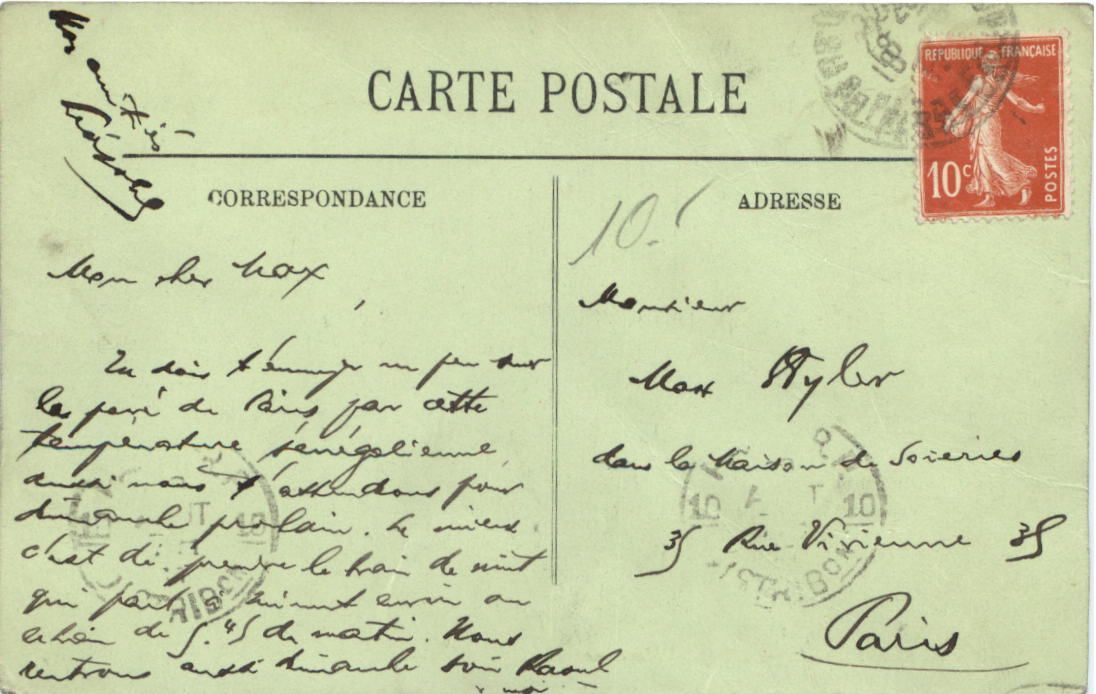 Mon amitiés
CARTE POSTALE
REPUBLIQUE FRANÇAISE
10c
POSTES
CORRESPONDANCE
ADRESSE
10.
Mon cher Max,
Tu dois t'ennuyer un peu sur
le pavé de Paris par cette
température sénégalienne
aussi nous t'attendons pour
dimanche prochain. Le mieux
c'est de prendre le train de nuit
qui part à minuit environ ou
celui de 5.45 du matin. Nous
rentrons aussi dimanche soir Raoul
moi
Monsieur
Max Wyler
dans la Maison de Soieries
35 Rue Vivienne 35
Paris
10 10